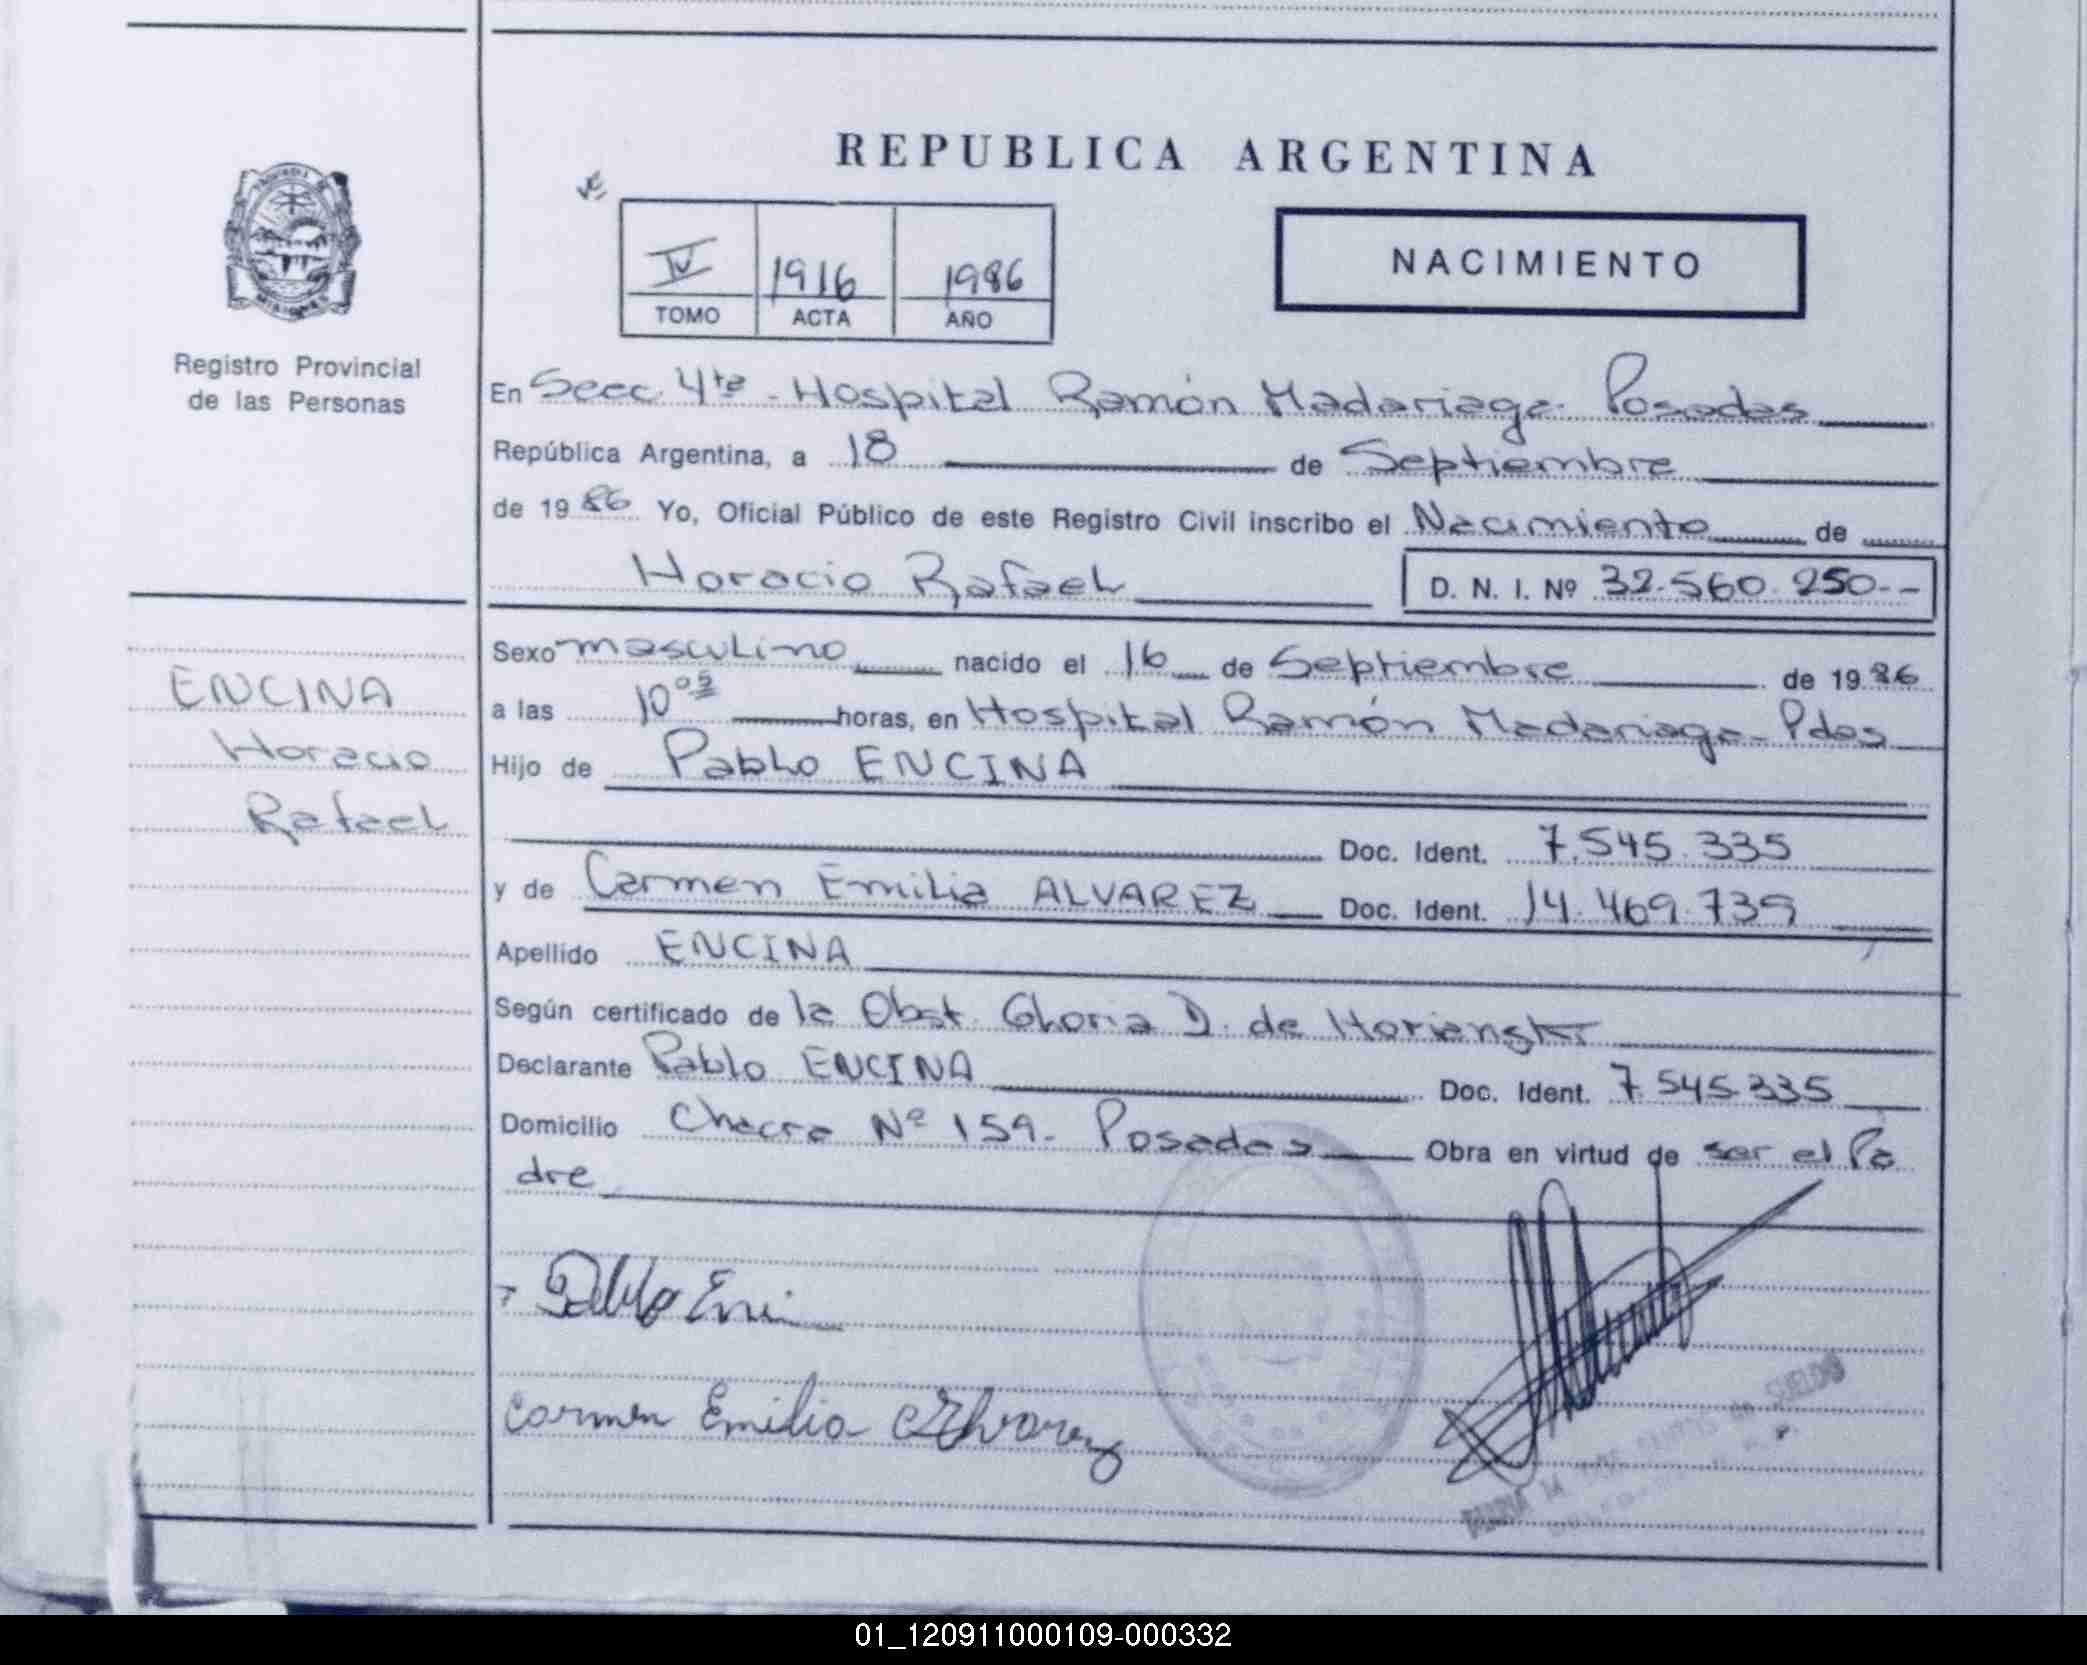 REPUBLICA ARGENTINA
IV 1916 1986
TOMO ACTA AÑO
NACIMIENTO
Registro Provincial
de las Personas
En Secc. 4ta - Hospital Ramón Madariaga - Posadas
República Argentina, a 18 de Septiembre
de 1986 Yo, Oficial Público de este Registro Civil inscribo el Nacimiento de
Horacio Rafael D. N. I. Nº 32.560.250--
ENCINA
Horacio
Rafael
Sexo masculino nacido el 16 de Septiembre de 1986
a las 10 05 horas, en Hospital Ramón Madariaga - Pdas
Hijo de Pablo ENCINA
Doc. Ident. 7.545.335
y de Carmen Emilia ALVAREZ Doc. Ident. 14.469.739
Apellido ENCINA
Según certificado de la Obst. Gloria D. de
Declarante Pablo ENCINA Doc. Ident. 7.545.335
Domicilio Chacra Nº 159 - Posadas Obra en virtud de ser el Pa
dre
Pablo Enci
Carmen Emilia Alvarez
MARIA de SUELDO
01_120911000109-000332